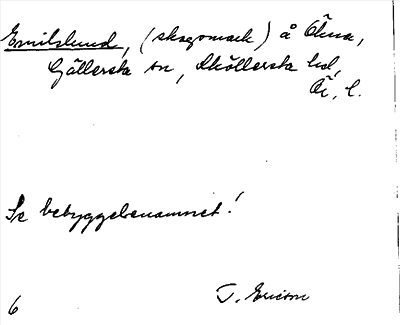 Emilslund, (skogsmark) å Ökna,
Gällersta sn, Sköllersta hd,
Ö. l.
Se bebyggelsenamnet!
J. Ericson
6